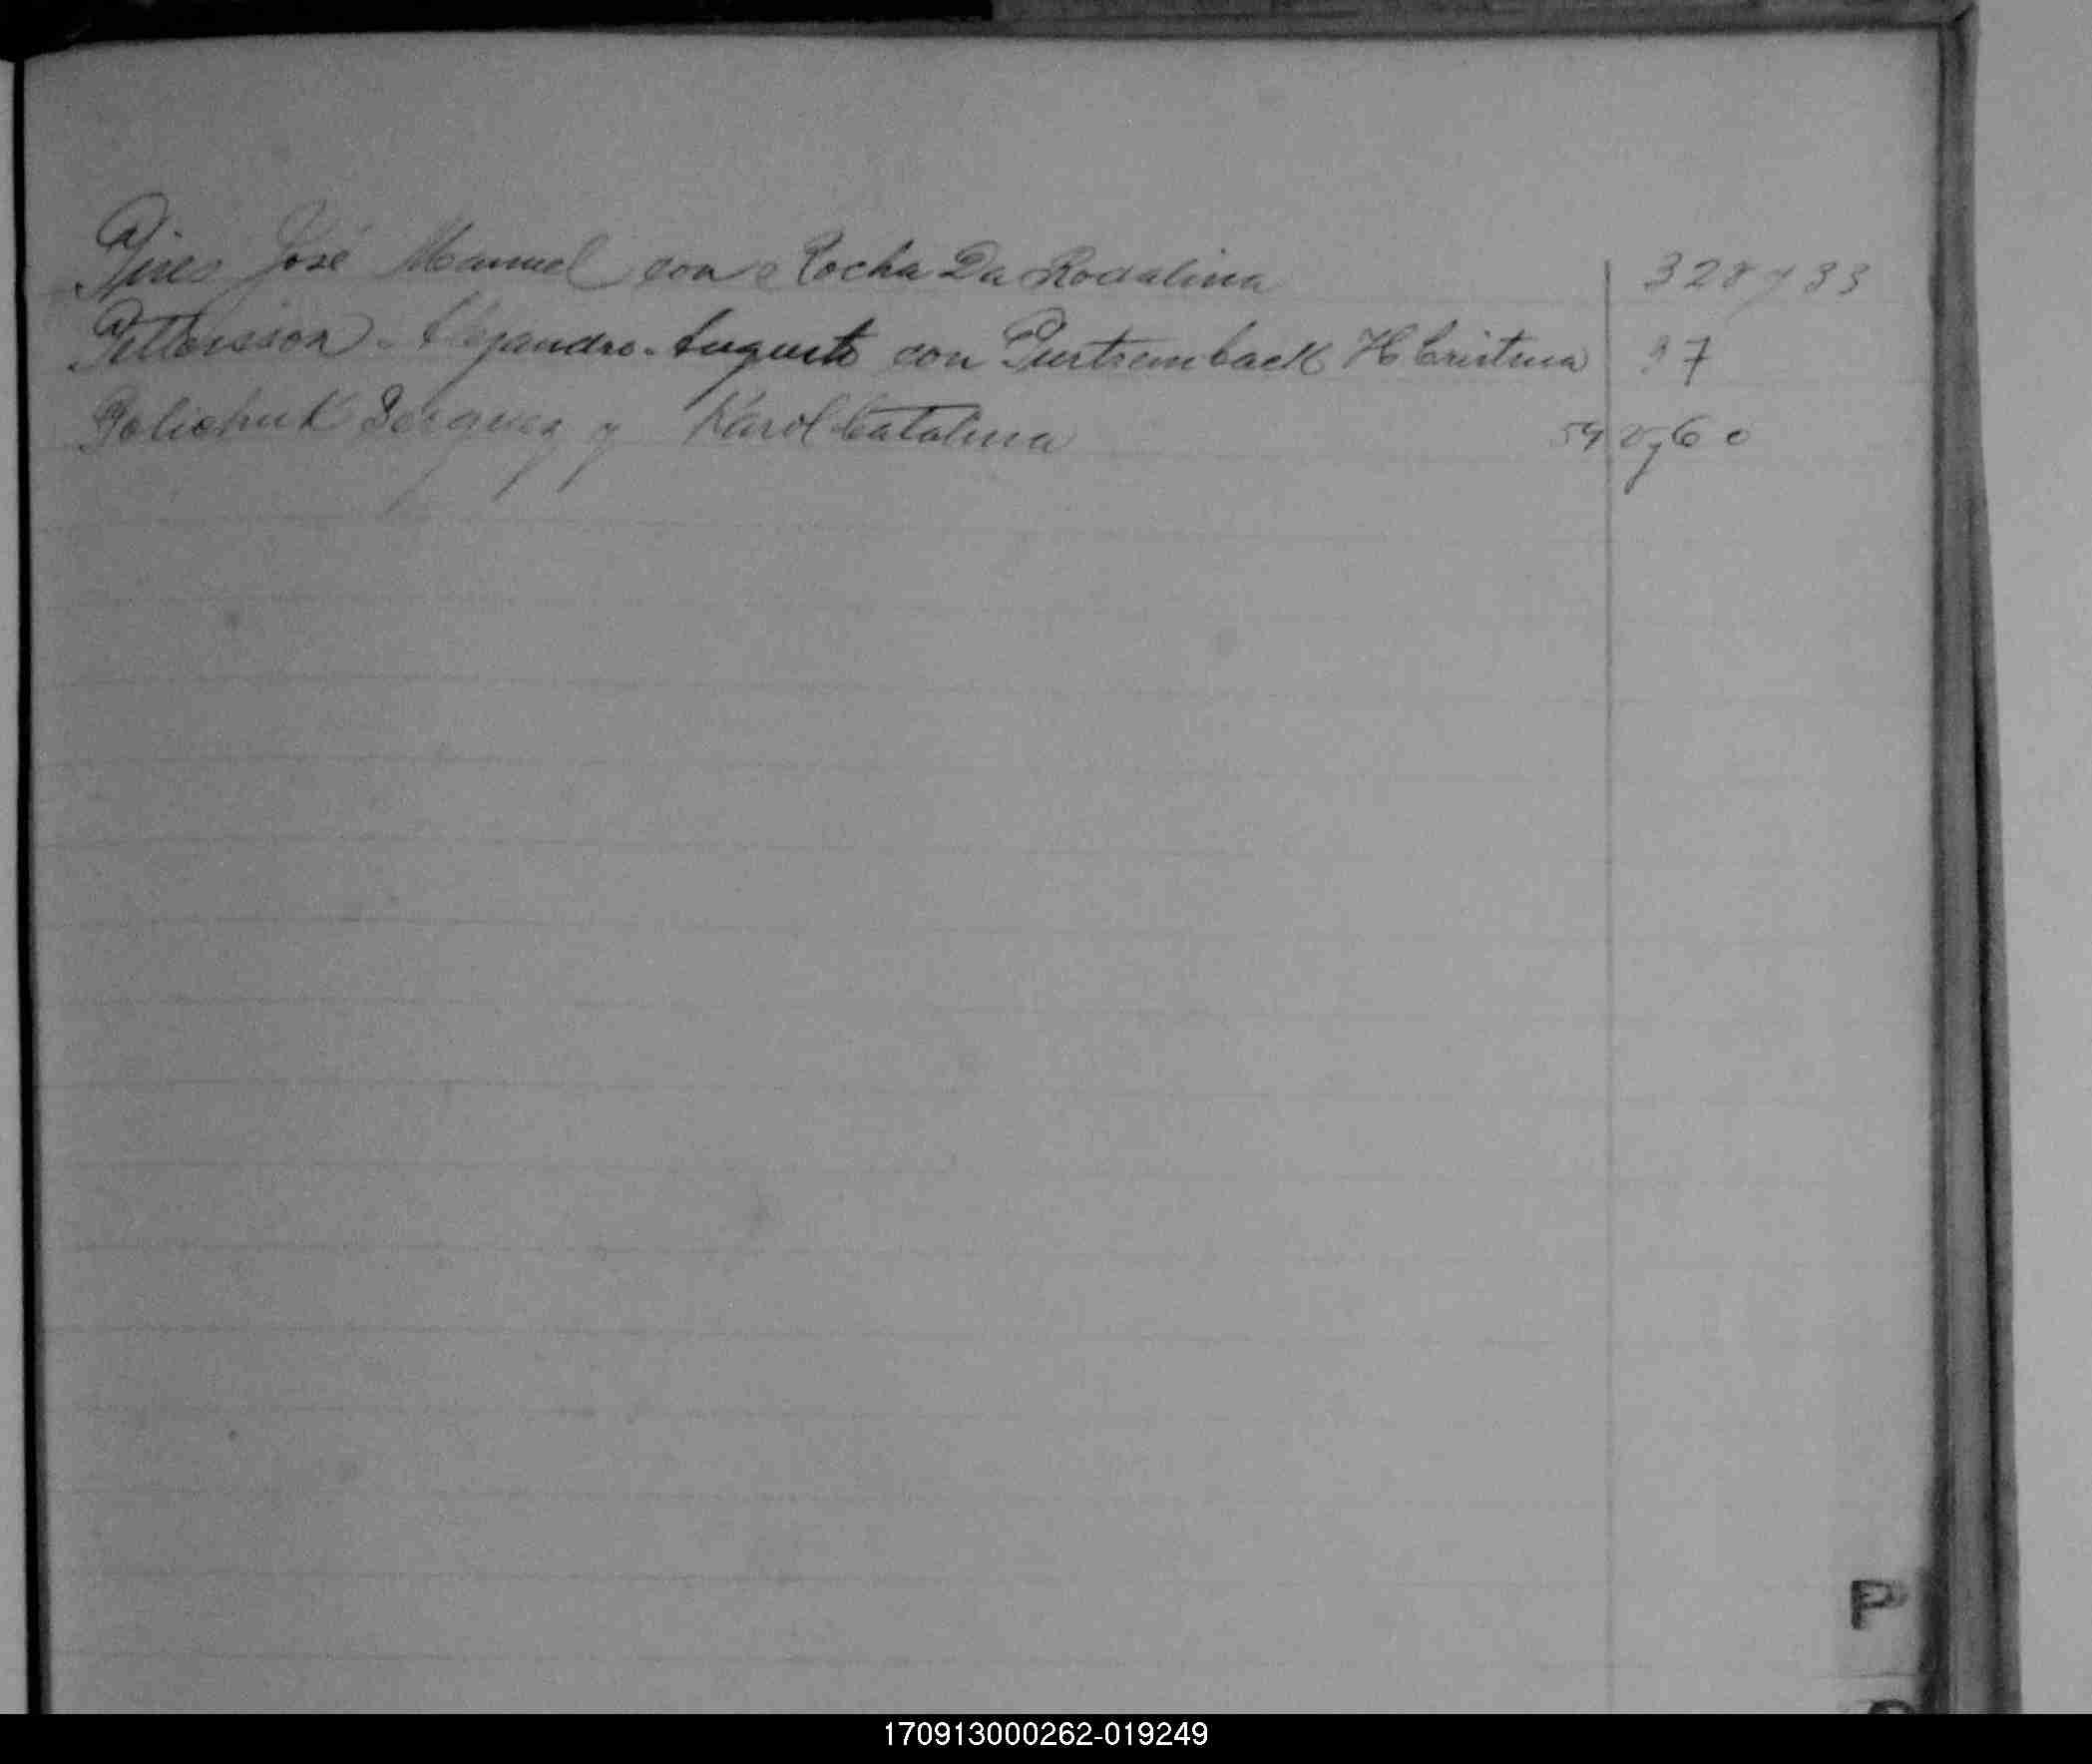 Pires José Manuel con Rocha Da Rosalina 32 y 33
Pettersson Alejandro Augusto con H Cristina 37
Polichuk y Karol Catalina 59 y 60
P
170913000262-019249